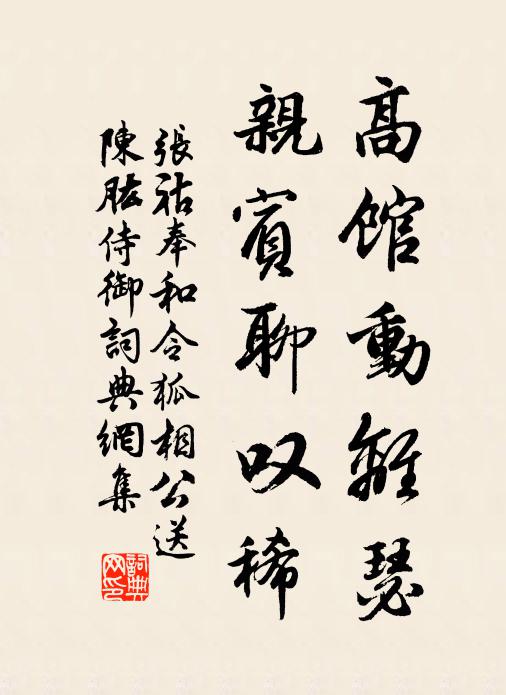 高馆動離瑟
親賓聊叹稀
張祜奉和令狐相公送
陳肱侍御詞典網集
詞典网印